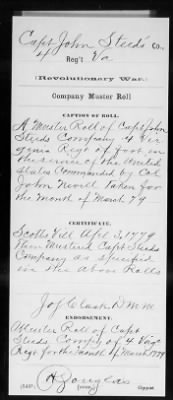 Capt John Steeds Co.,
4 Reg't Va
(Revolutionary War.)
Company Muster Roll
CAPTION OF ROLL.
A Muster Roll of Capt John
Steeds Company 4 Vir
ginia Regt of foot in
the service of the United
States Commanded by Col
John Nevill taken for
the month of March 79
CERTIFICATE.
Scotts Vill Apl 3, 1779
then Mustered Capt Steeds
Company as specified
in the above Rolls
Jos Clark D M M
ENDORSEMENT.
Muster Roll of Capt
Steeds Compy of 4 Virga
Regt for the month of March 1779
Douglas
Copyist.